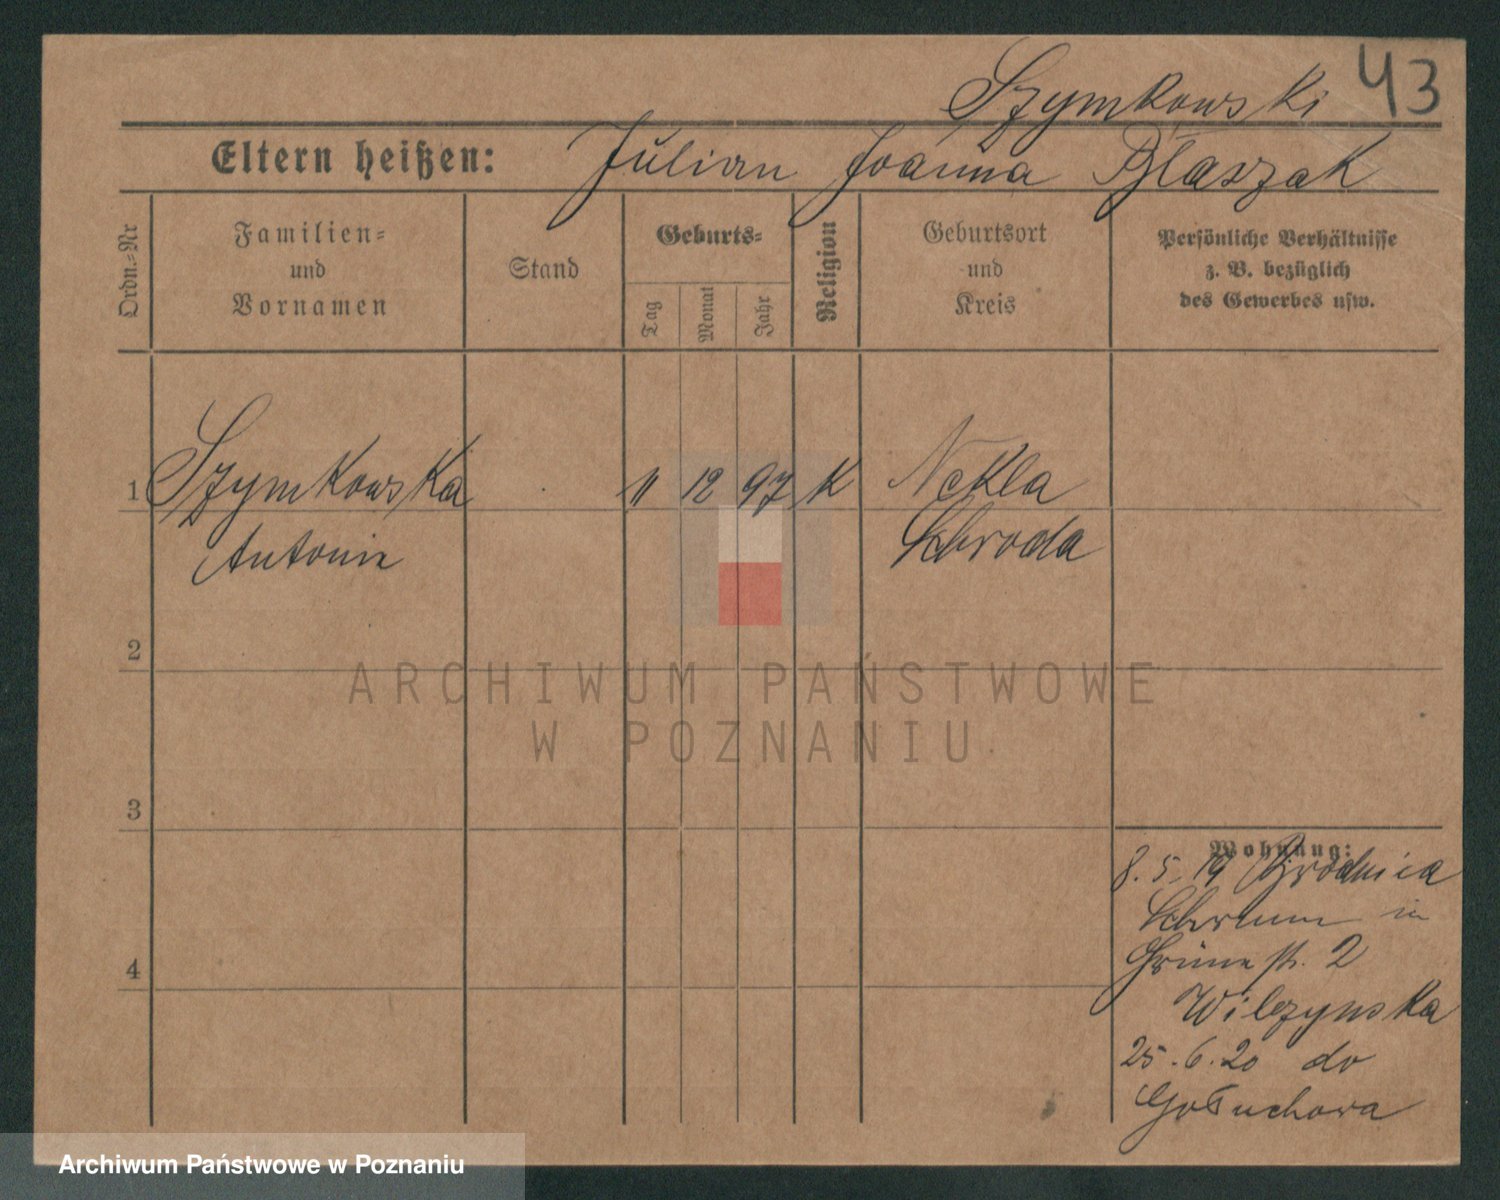 Szymkowski 43
Eltern heißen: Julian Joanna Błaszak
Ordn.-Nr
Familien=
und
Vornamen
Stand
Geburts=
Tag
Monat
Jahr
Religion
Geburtsort
und
Kreis
Persönliche Verhältnisse
z. B. bezüglich
des Gewerbes usw.
1 Szymkowska 11 12 97 K Nekla
Antonie Schroda
2
ARCHIWUM PAŃSTWOWE
W POZNANIU
3
Wohnung:
8. 5. 19 Brodnica
Schrimm in
4
Grünestr. 2
Wilczynska
25. 6. 20 do
Gołuchowa
Archiwum Państwowe w Poznaniu